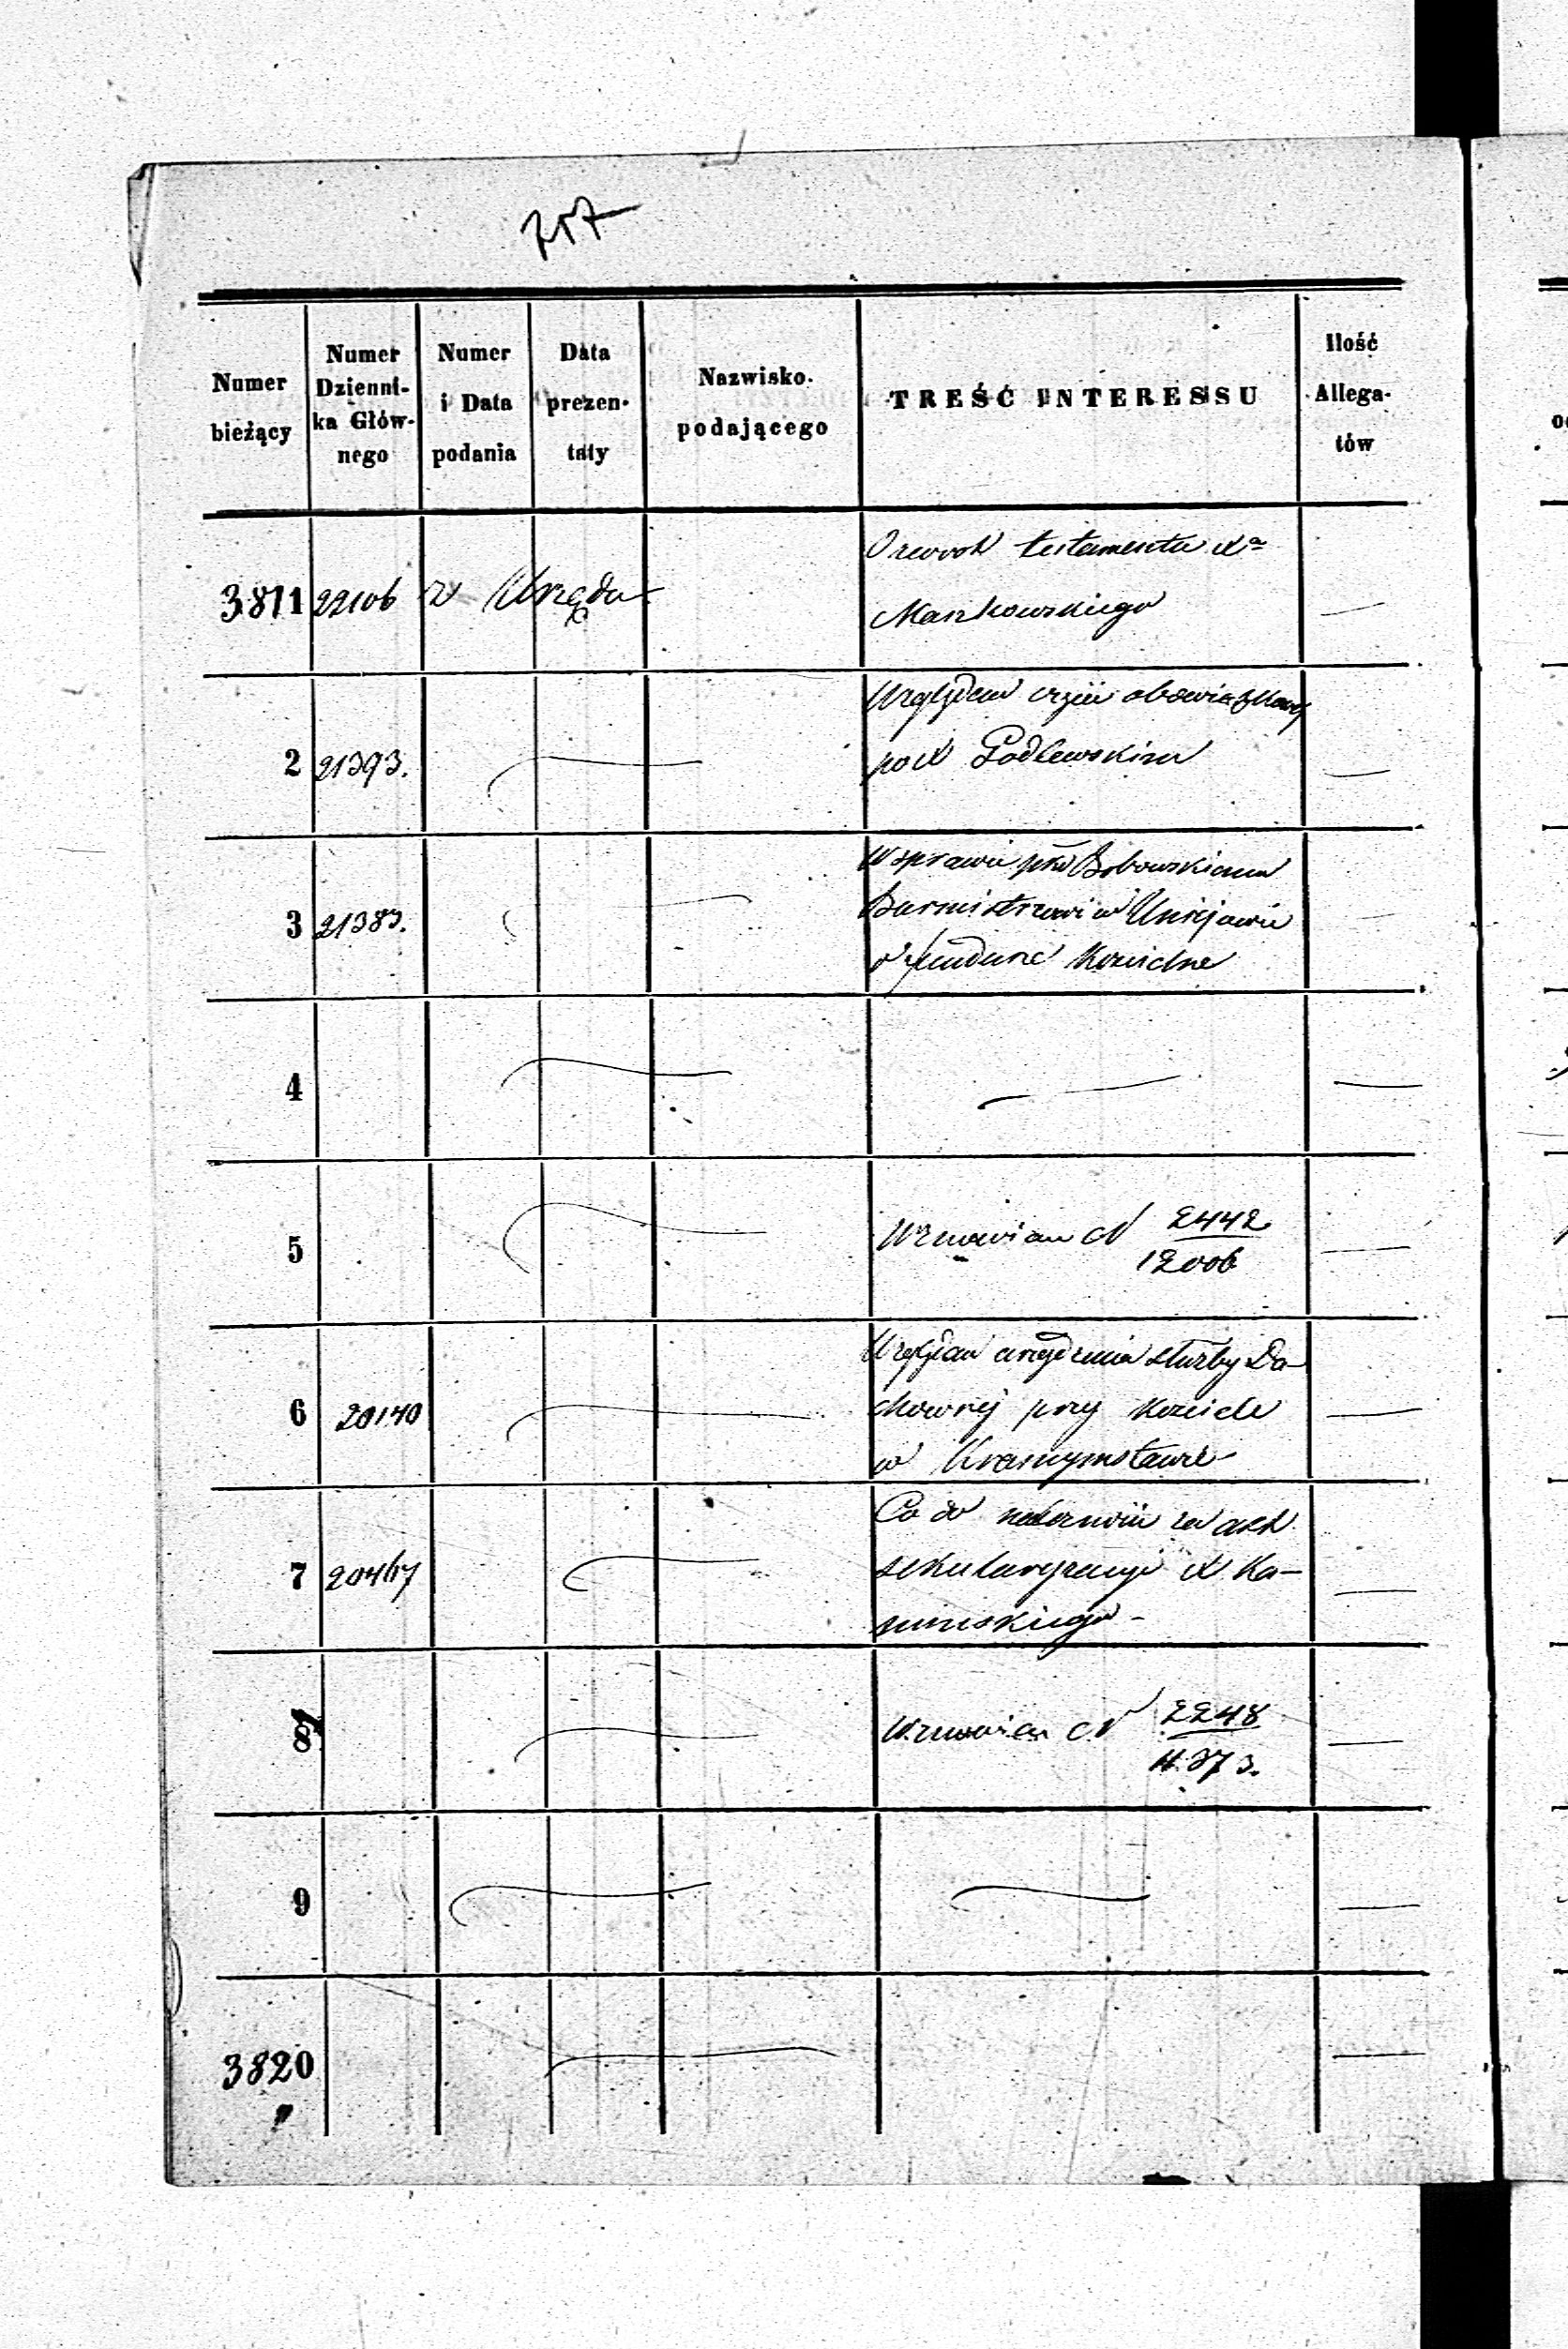 257
Numer bieżący
Numer Dzienni-ka Głów-nego
Numer i Data podania
Data prezen-taty
Nazwisko podającego
TREŚĆ INTERESSU
Ilość Allega-tów
3811 22106 z Urzędu
testamentu Xa
Maszkowskiego
—
2 21393.
Względem obowiązkowej
po X Podlewskim
—
3 21383.
W sprawie płko Bobowskiemu
Burmistrzowi w Uniejowie
o fundusz Kościelne
4 — —
5
Wznowian N 2442
12006
—
6 20140
Względem urządzenia służby Du-
chownej przy Kościele
w Krasnymstawie
—
7 20467
Co do za akt
sekularyzacyi X Ka-
mińskiego -
—
8
Wznowian N 2248
11.373.
—
9 — —
3820 —